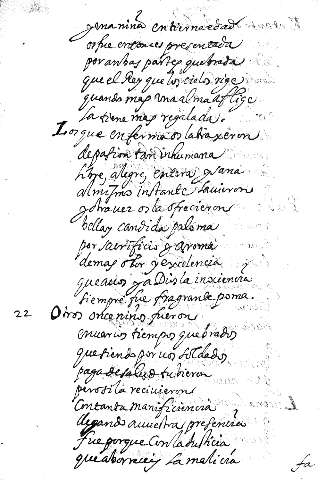 y en a niña enfermedad
os fue entonces presentada
por ambas partes quebrada
que el Rey que los cielos rige
quando mas una alma aflige
la tiene mas regalada.
Los que enferma os la traxeron
de pasion tan inhumana
libre, alegre, entera y sana
al mismo instante la vieron
y otra vez os la ofrecieron
bella y candida paloma
por sacrificio y aroma
de mas olor y excelencia
que a vos y a Dios la inocencia
siempre fue fragrante poma.
22 Otros once niños fueron
en varios tiempos quebrados
que siendo por vos soldados
paga de salud tubieron
pero si la recivieron
con tanta manificiencia
llegando a vuestra presencia
fue porque con la justicia
que aborreceis la malicia
fa